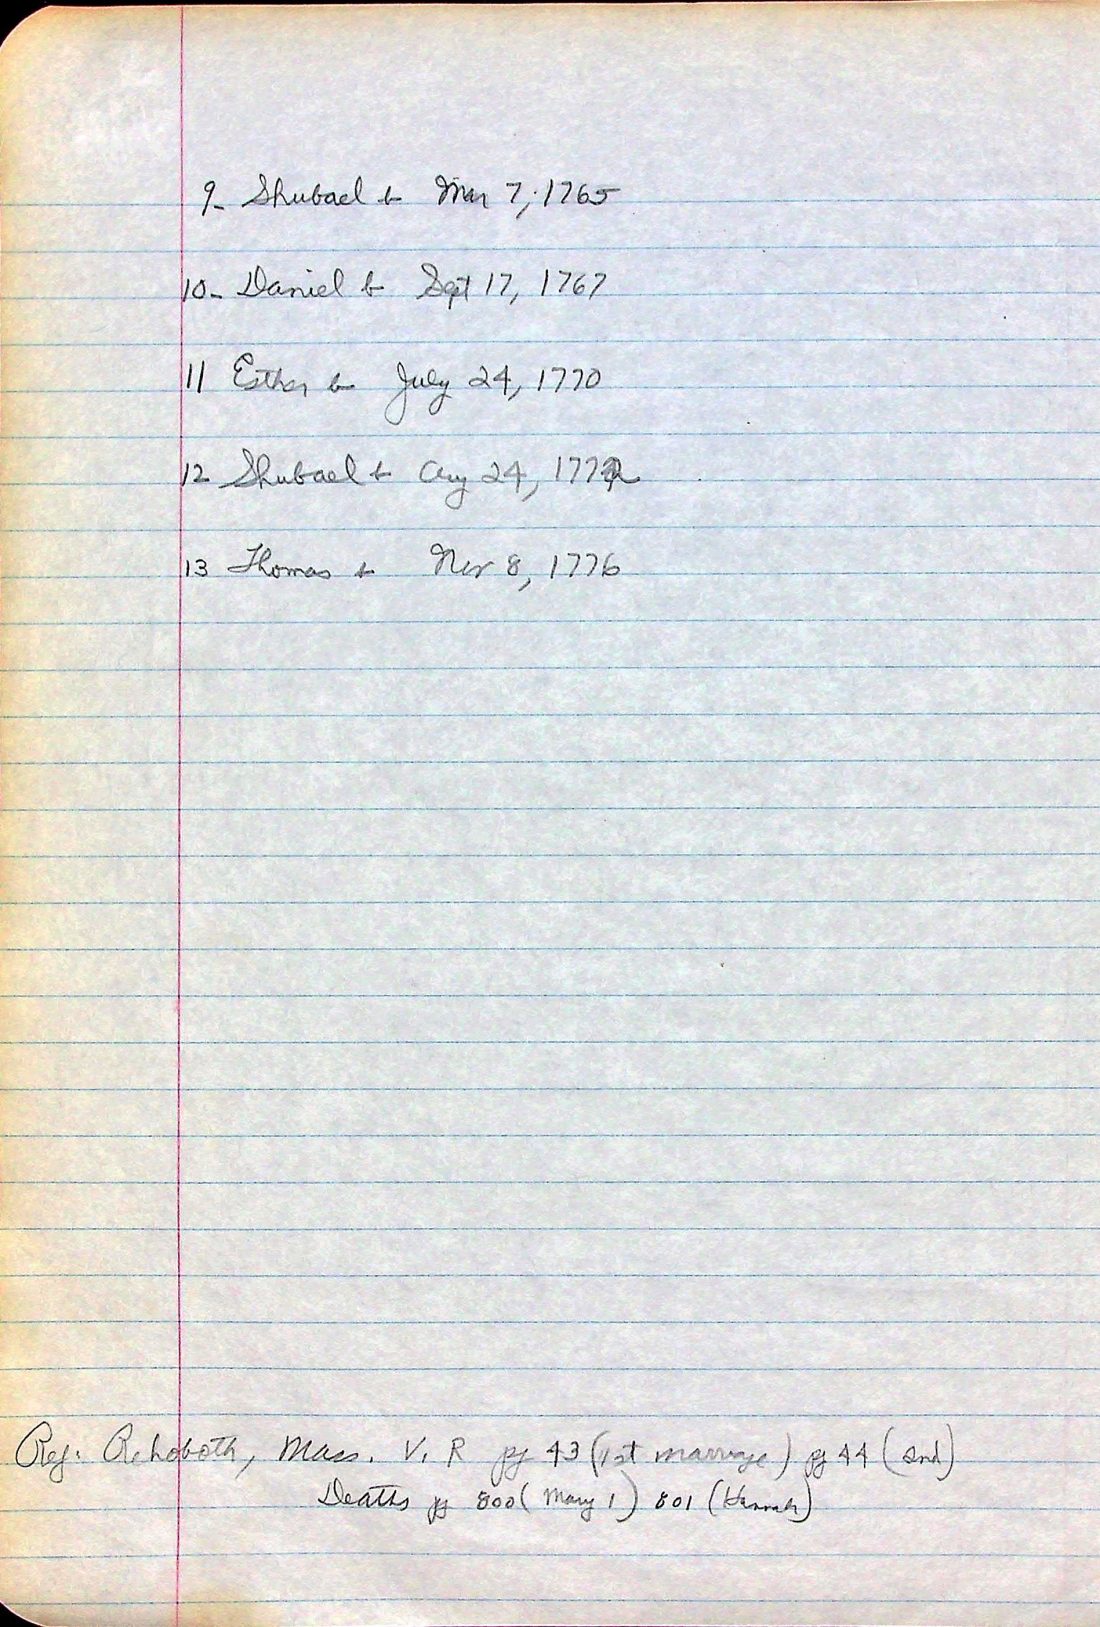 9- Shubael b Mar 7, 1765
10- Daniel b Sept 17, 1767
11 Esther b July 24, 1770
12 Shubael b Aug 24, 1772
13 Thomas b Nov 8, 1776
Ref: Rehoboth, Mass. V. R pg 43 (1st marriage) pg 44 (2nd)
Deaths pg 800 (Mary 1) 801 (Hannah)